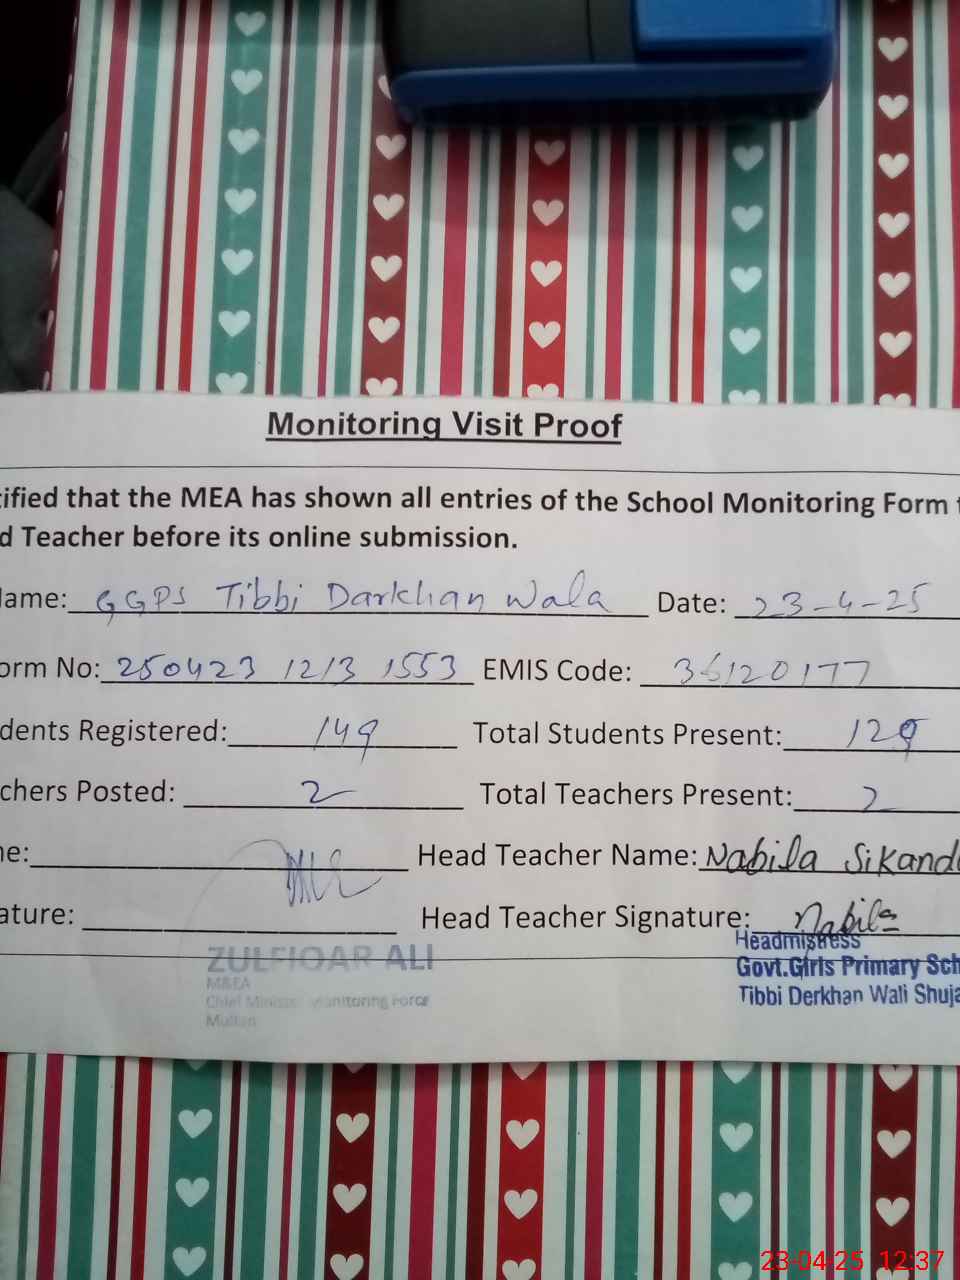 Monitoring Visit Proof
ified that the MEA has shown all entries of the School Monitoring Form
d Teacher before its online submission.
ame: GGPS Tibbi Darkhan Wala Date: 23-4-25
orm No: 250423 1213 1553 EMIS Code: 36120177
dents Registered: 149 Total Students Present: 129
chers Posted: 2 Total Teachers Present: 2
ne: Head Teacher Name: Nabila Sikand
ature: Head Teacher Signature: Nabila
Headmistress
ZULFIQAR ALI Govt.Girls Primary Sch
M&EA
Chief Minister Monitoring Force Tibbi Derkhan Wali Shuja
Multan
23-04-25 12:37